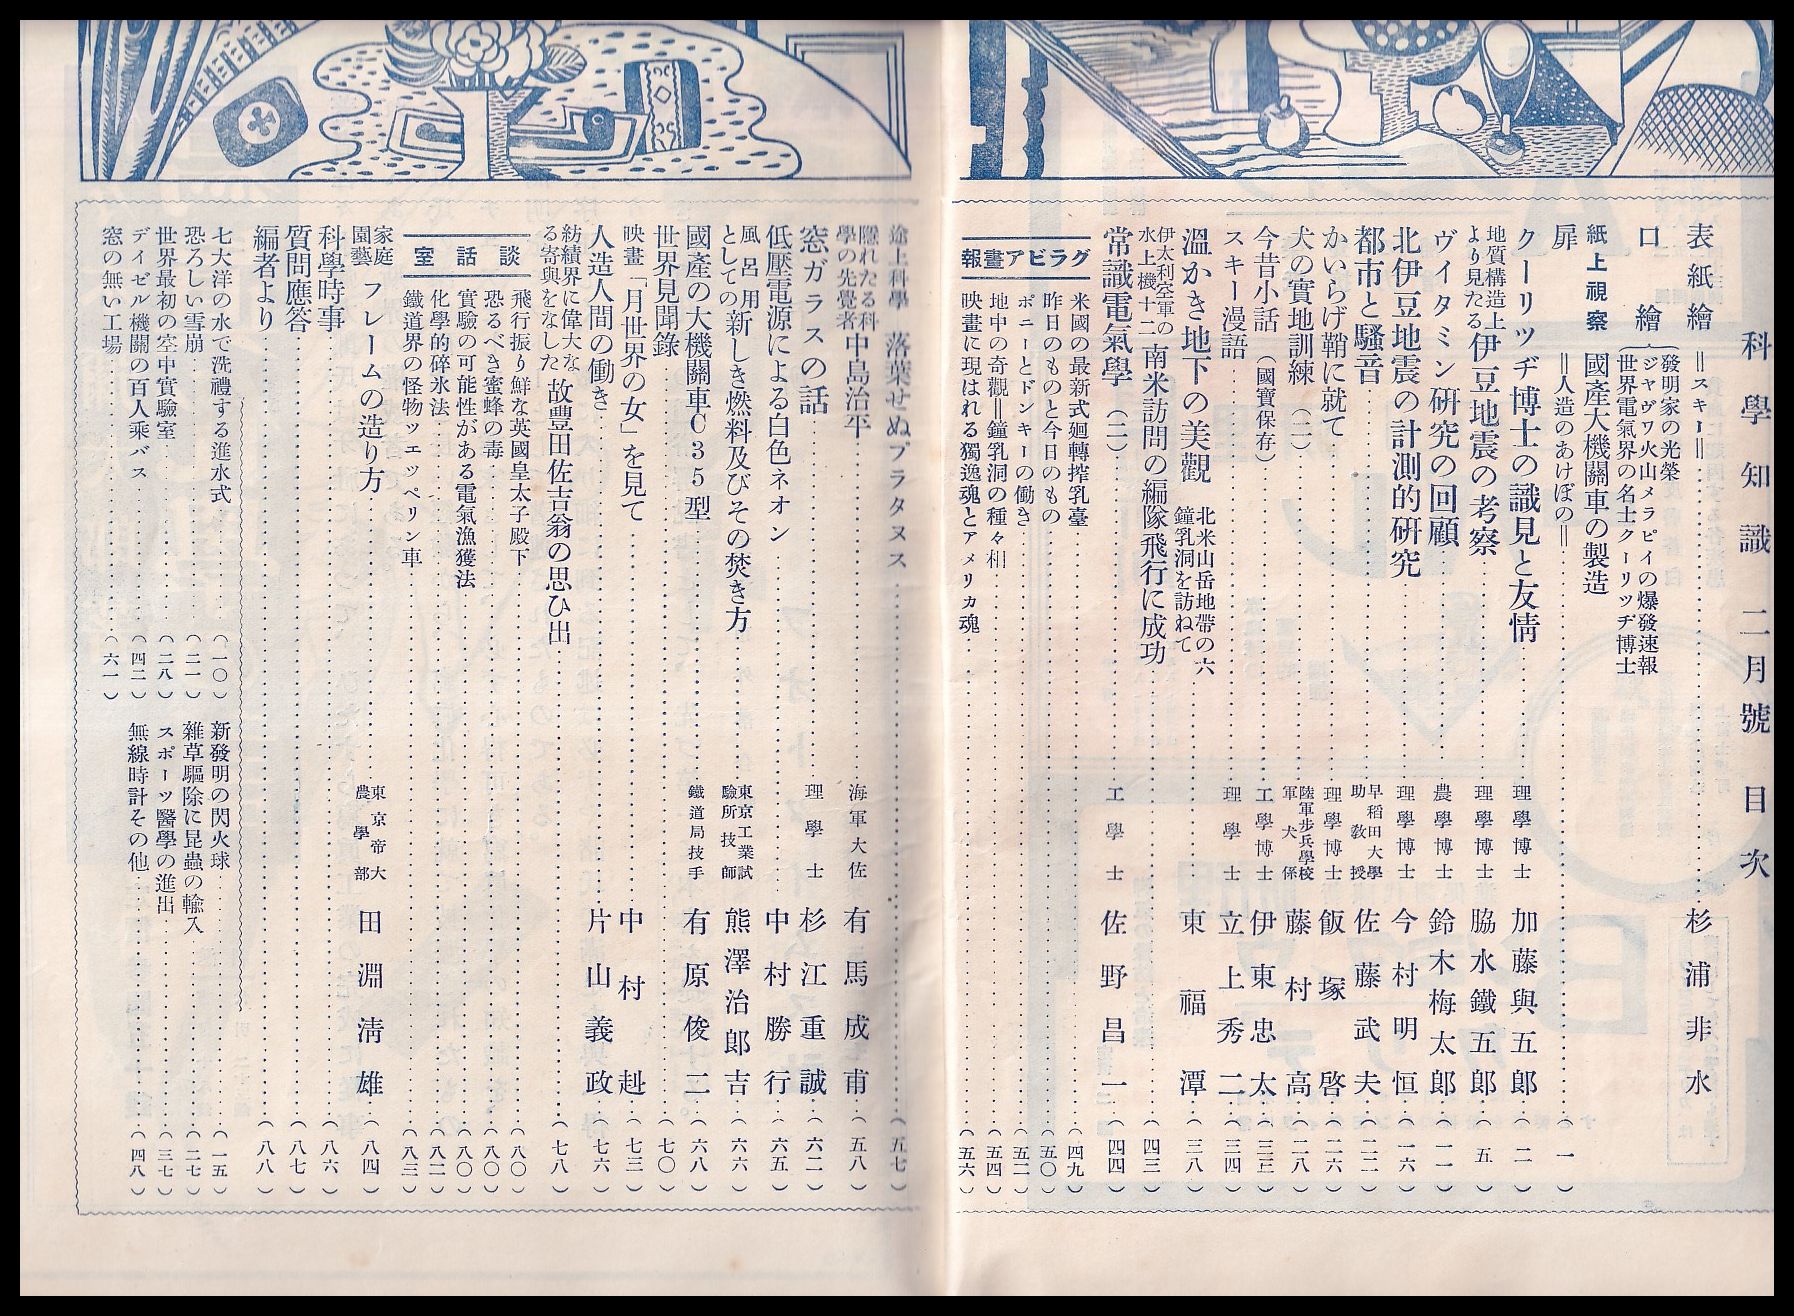 科學知識 二月號 目次
表紙繪 ‖スキー‖ 杉浦非水
口繪
發明家の光榮
ジャヴワ火山メラピイの爆發速報
世界電氣界の名士クーリツヂ博士
紙上視察 國產大機關車の製造
扉 ‖人造のあけぼの‖ (一)
クーリツヂ博士の識見と友情 理學博士 加藤與五郎 (二)
地質構造上より見たる伊豆地震の考察 理學博士 脇水鐵五郎 (五)
ヴイタミン硏究の回顧 農學博士 鈴木梅太郎 (一一)
北伊豆地震の計測的硏究 理學博士 今村明恒 (一六)
都市と騷音 早稻田大學助敎授 佐藤武夫 (二二)
かいらげ鞘に就て 理學博士 飯塚啓 (二六)
犬の實地訓練(二) 陸軍步兵學校軍犬係 藤村高 (二八)
今昔小話(國寶保存) 工學博士 伊東忠太 (三三)
スキー漫語 理學士 立上秀二 (三四)
溫かき地下の美觀 北米山岳地帶の六鐘乳洞を訪ねて 東福潭 (三八)
伊太利空軍の水上機十二南米訪問の編隊飛行に成功 (四三)
常識電氣學(二) 工學士 佐野昌一 (四四)
グラビア畫報
米國の最新式廻轉搾乳臺 (四九)
昨日のものと今日のもの (五〇)
ポニーとドンキーの働き (五二)
地中の奇觀‖鐘乳洞の種々相 (五四)
映畫に現はれる獨逸魂とアメリカ魂 (五六)
途上科學 落葉せぬプラタヌス (五七)
隱れたる科學の先覺者 中島治平 海軍大佐 有馬成甫 (五八)
窓ガラスの話 理學士 杉江重誠 (六二)
低壓電源による白色ネオン 中村勝行 (六五)
風呂用としての新しき燃料及びその焚き方 東京工業試驗所技師 熊澤治郎吉 (六六)
國產の大機關車C35型 鐵道局技手 有原俊二 (六八)
世界見聞錄 (七〇)
映畫「月世界の女」を見て 中村赳 (七三)
人造人間の働き 片山義政 (七六)
紡績界に偉大なる寄與をなした 故豐田佐吉翁の思ひ出 (七八)
談話室
飛行振り鮮な英國皇太子殿下 (八〇)
恐るべき蜜蜂の毒 (八〇)
實驗の可能性がある電氣漁獲法 (八〇)
化學的碎氷法 (八二)
鐵道界の怪物ツエッペリン車 (八三)
家庭園藝 フレームの造り方 東京帝大農學部 田淵淸雄 (八四)
科學時事 (八六)
質問應答 (八七)
編者より (八八)
七大洋の水で洗禮する進水式 (一〇)
恐ろしい雪崩 (二一)
世界最初の空中實驗室 (二八)
デイゼル機關の百人乘バス (四二)
窓の無い工場 (六一)
新發明の閃火球 (一五)
雜草驅除に昆蟲の輸入 (二七)
スポーツ醫學の進出 (三七)
無線時計その他 (四八)